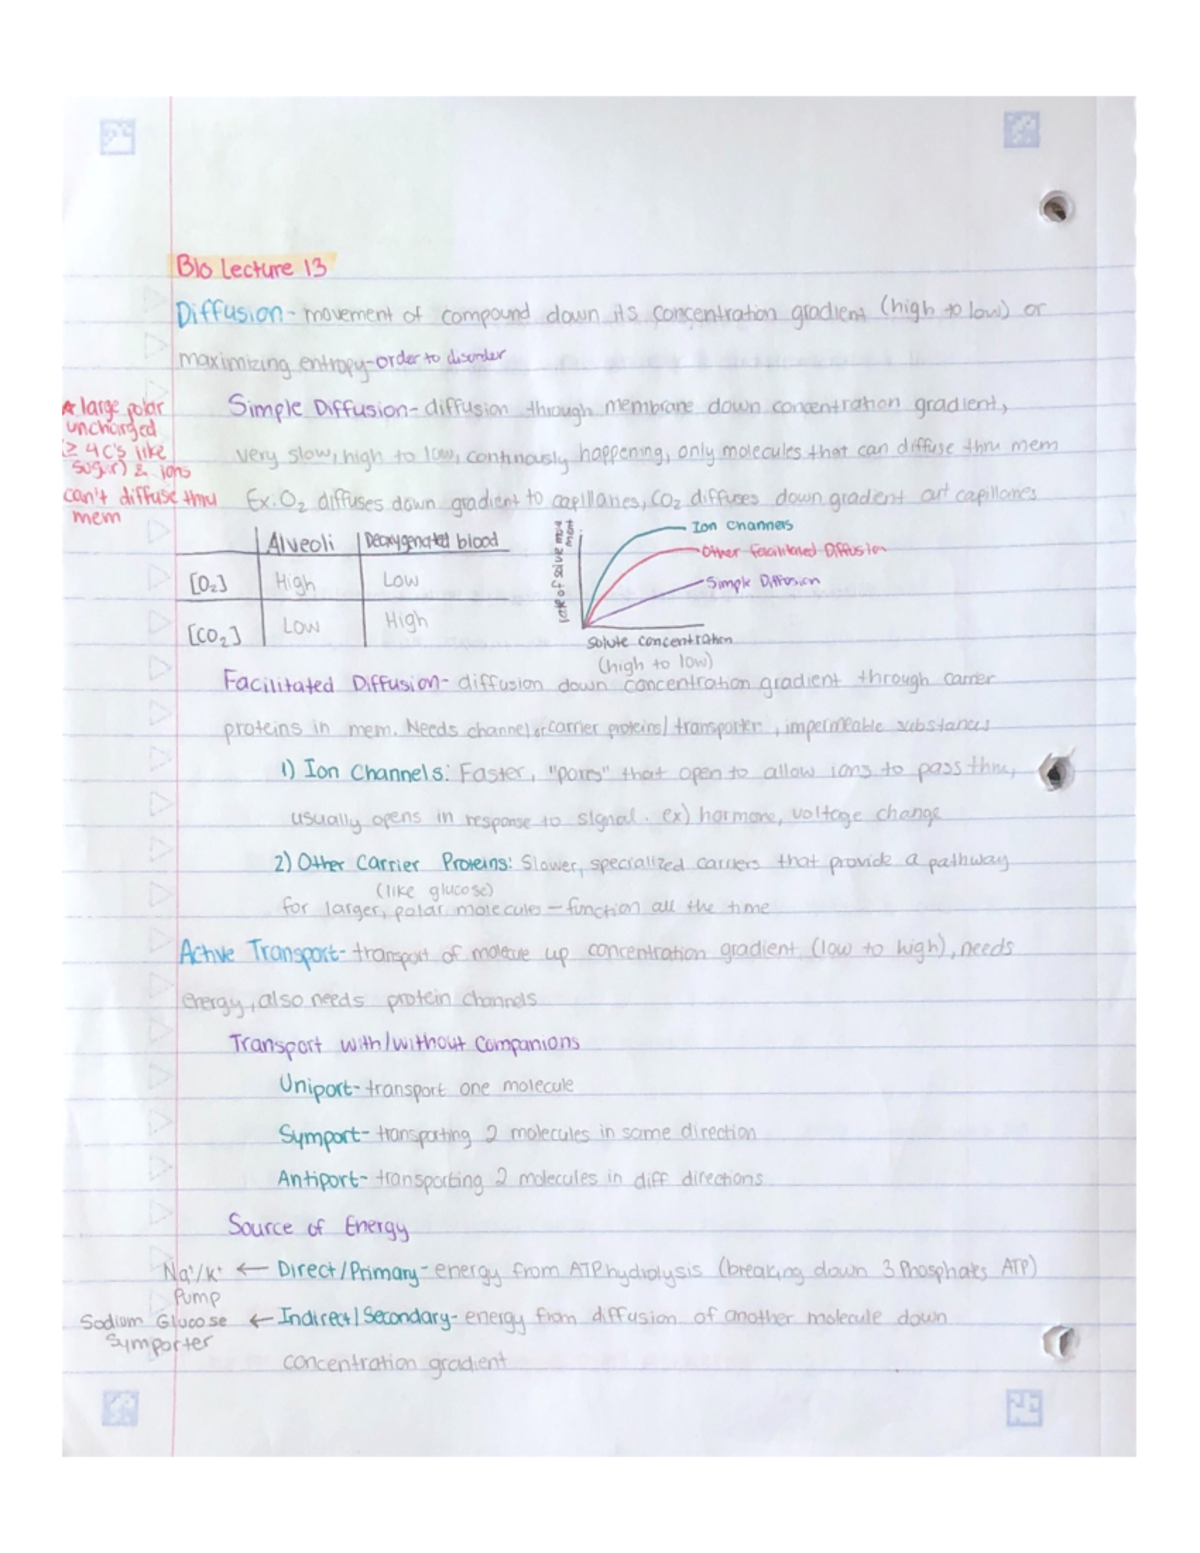 Bio Lecture 13
Diffusion- movement of compound down its concentration gradient (high to low) or
maximizing entropy-order to disorder
* large polar
uncharged
(≥ 4C's like
sugar) & ions
can't diffuse thru
mem
Simple Diffusion- diffusion through membrane down concentration gradient,
very slow, high to low, continously happening, only molecules that can diffuse thru mem
Ex. O₂ diffuses down gradient to capillaries, CO₂ diffuses down gradient out capillaries
Alveoli Deoxygenated blood
[O₂] High Low
[CO₂] Low High
rate of solve move
ment
Ion Channels
Other Facilitated Diffusion
Simple Diffusion
Solute concentration
(high to low)
Facilitated Diffusion- diffusion down concentration gradient through carrier
proteins in mem. Needs channel or carrier proteins/transporter, impermeable substances
1) Ion Channels: Faster, "pores" that open to allow ions to pass thru,
usually opens in response to signal. ex) hormone, voltage change
2) Other Carrier Proteins: Slower, specialized carriers that provide a pathway
(like glucose)
for larger, polar molecules - function all the time
Active Transport- transport of molecule up concentration gradient (low to high), needs
energy, also needs protein channels
Transport with/without Companions
Uniport- transport one molecule
Symport- transporting 2 molecules in same direction
Antiport- transporting 2 molecules in diff directions
Source of Energy
Na⁺/K⁺ ← Direct/Primary- energy from ATP hydrolysis (breaking down 3 Phosphates ATP)
Pump
Sodium Glucose ← Indirect/Secondary- energy from diffusion of another molecule down
Symporter
concentration gradient